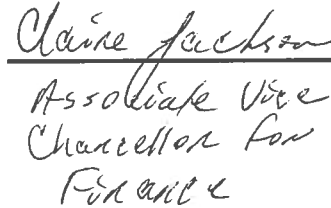 Claire Jackson
Associate Vice
Chancellor for
Finance